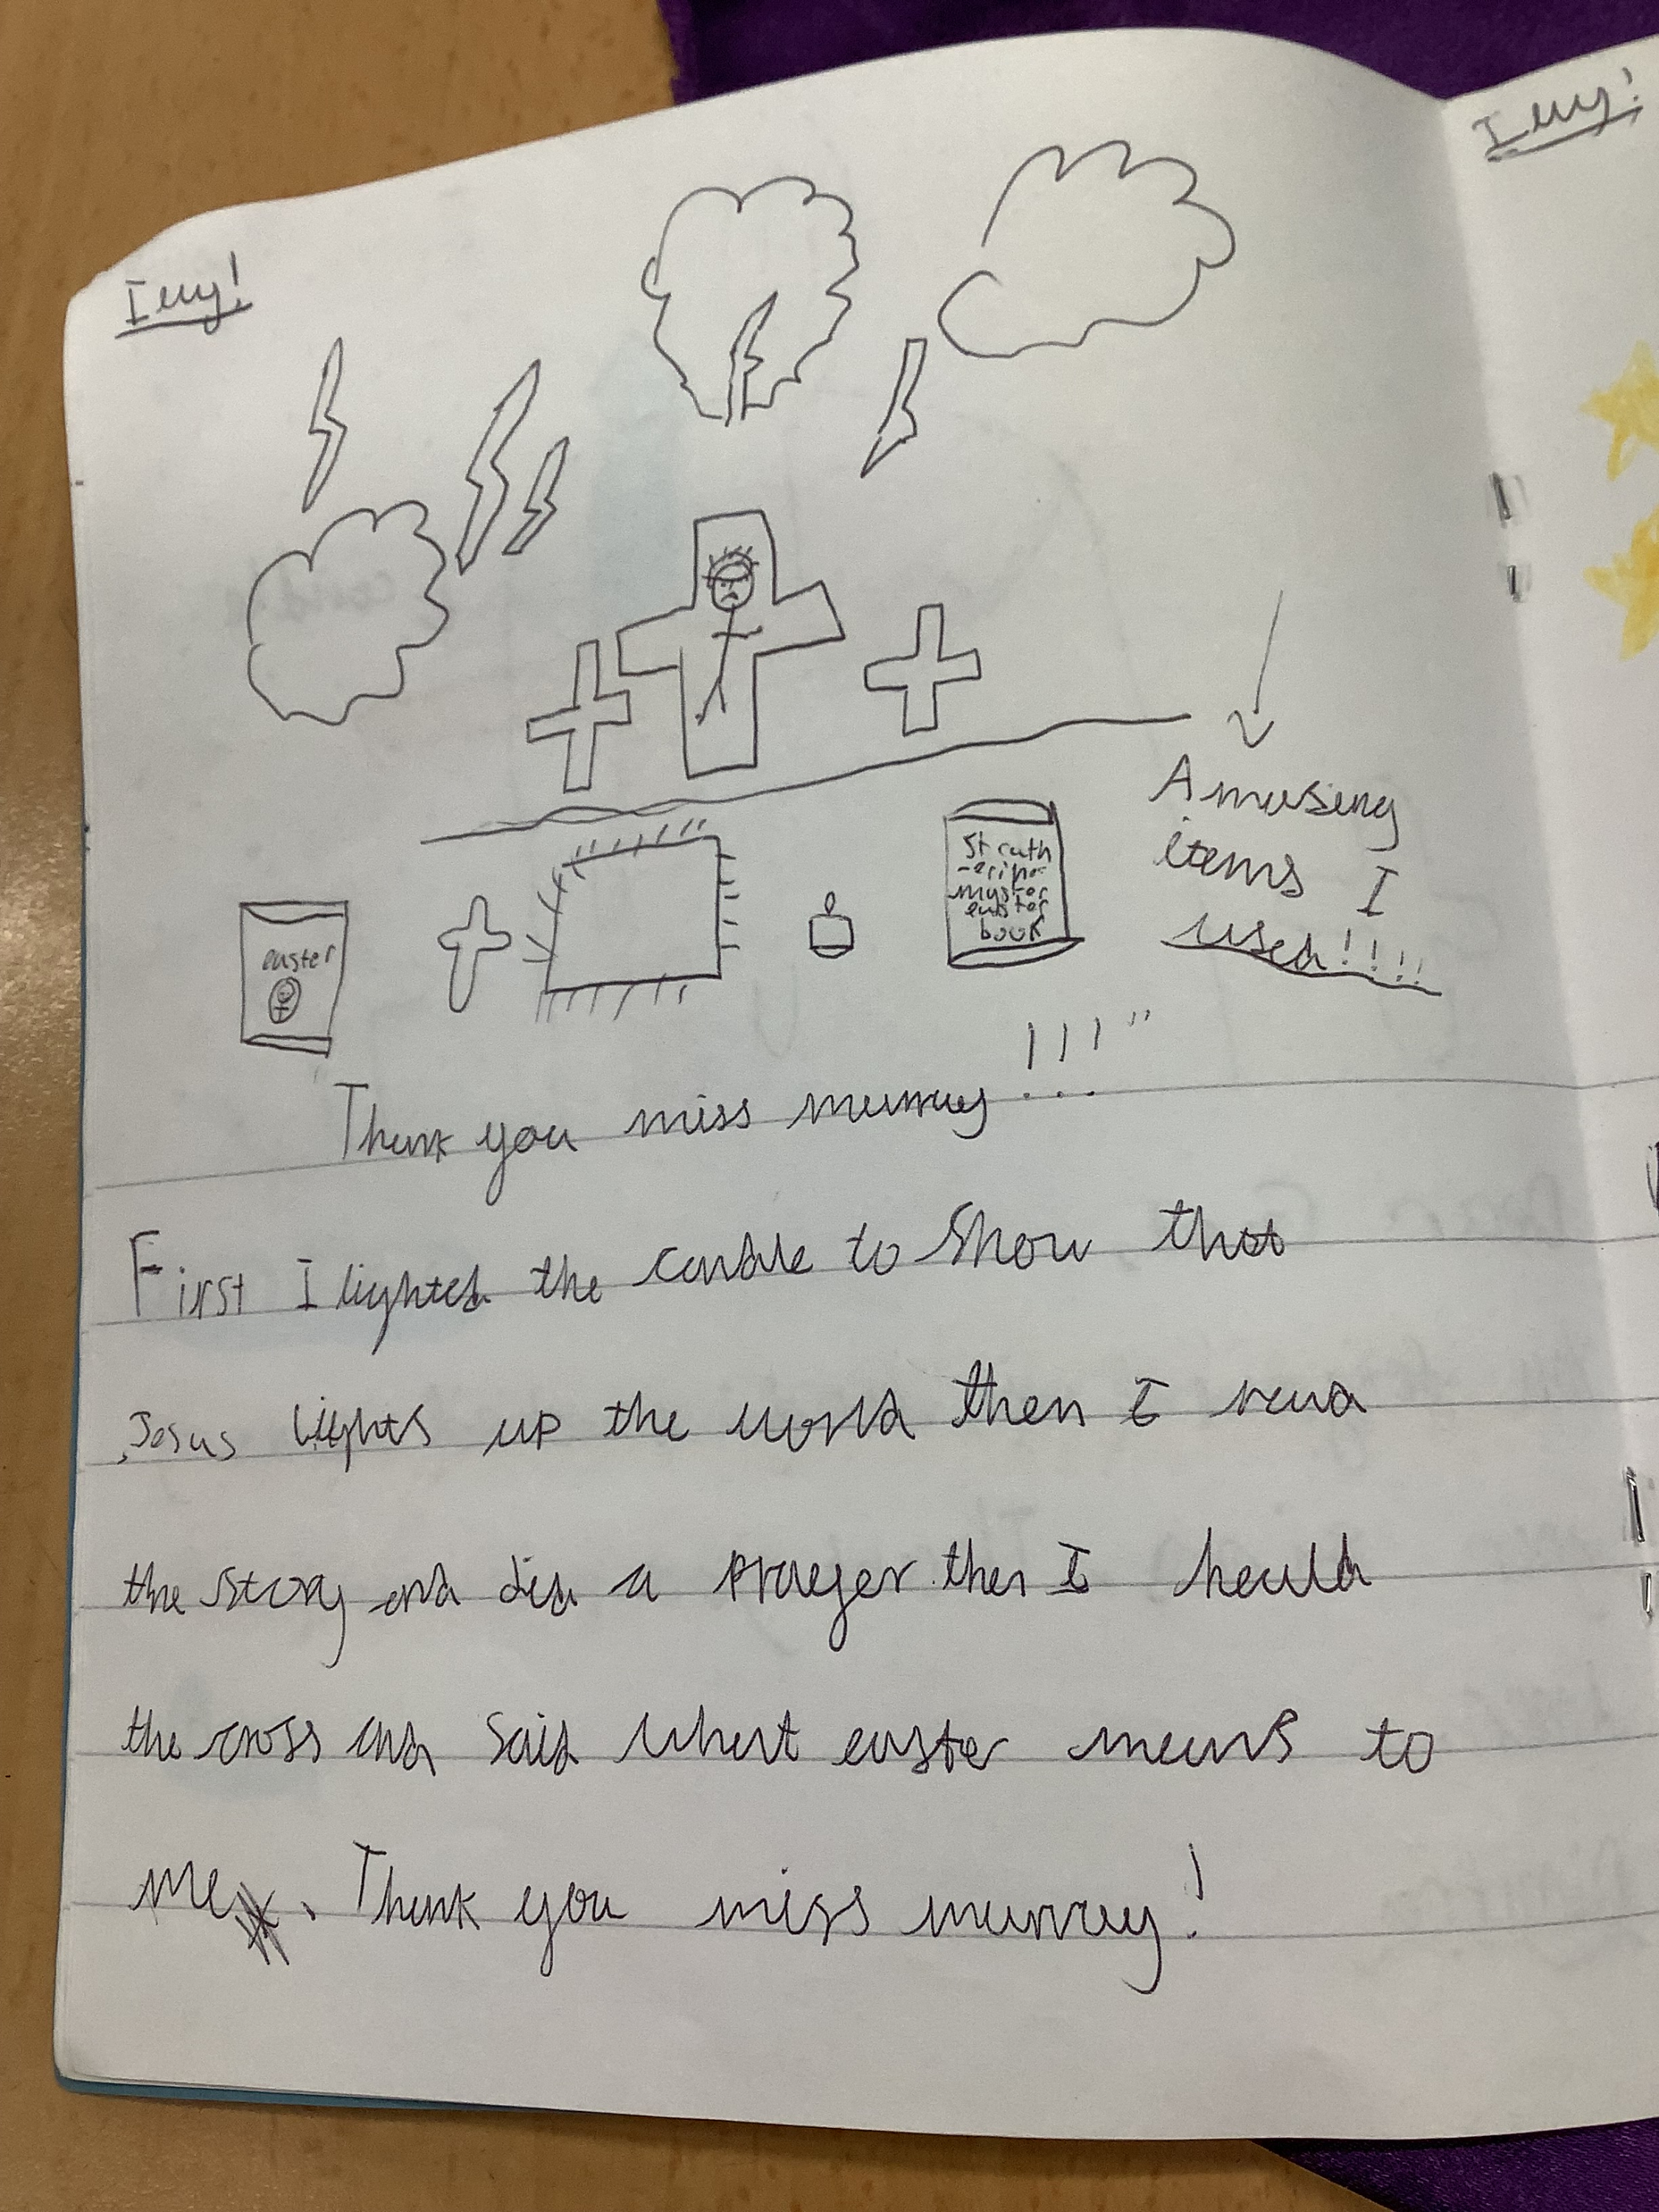 Imy!
Imy!
Amusing
items I
used!!!!!
easter
easter
book
Thank you miss murray!!!"
First I lighted the candle to show that
Jesus lights up the world then I read
the story and did a prayer then I heald
the cross and said what easter means to
me. Thank you miss murray!